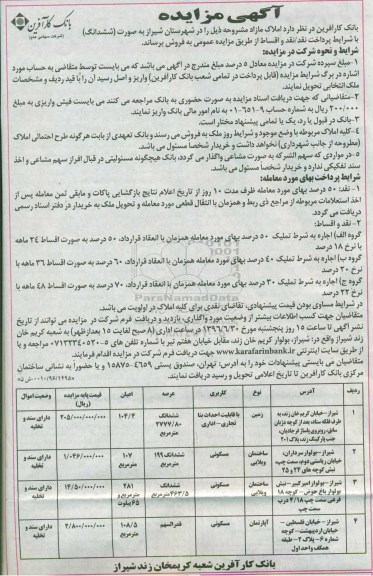 آگهی مزایده
بانک کارآفرین
(شرکت سهامی عام)
بانک کارآفرین در نظر دارد املاک مازاد مشروحه ذیل را در شهرستان شیراز به صورت (ششدانگ)
با شرایط پرداخت نقد/نقد و اقساط از طریق مزایده عمومی به فروش برساند.
شرایط و نحوه شرکت در مزایده:
۱-مبلغ سپرده شرکت در مزایده معادل ۵ درصد مبلغ مندرج در آگهی می باشد که می بایست توسط متقاضی به حساب مورد
اشاره در برگ شرایط مزایده (قابل پرداخت در تمامی شعب بانک کارآفرین) واریز و اصل رسید آن را با قید ردیف و مشخصات
ملک انتخابی تحویل نمایند.
۲-متقاضیانی که جهت دریافت اسناد مزایده به صورت حضوری به بانک مراجعه می کنند می بایست فیش واریزی به مبلغ
۲۰۰/۰۰۰ ریال به شماره حساب ۹-۶۵۱-۰۱ به نام امور مالی بانک واریز نمایند.
۳-بانک در قبول یا رد، یک یا تمامی پیشنهاد مختار است.
۴-کلیه املاک مربوطه با وضع موجود و شرایط روز ملک به فروش می رسند و بانک تعهدی از بابت هرگونه طرح احتمالی املاک
(مطروحه از جانب شهرداری) نخواهد داشت و خریدار شخصا مسئول می باشد.
۵-در مواردی که سهم الشرکه به صورت مشاعی واگذار می گردد، بانک هیچگونه مسئولیتی در قبال افراز سهم مشاعی و اخذ
سند تفکیکی ندارد و خریدار شخصا مسئول می باشد.
شرایط پرداخت بهای مورد معامله:
۱- نقد: ۵۰ درصد بهای مورد معامله ظرف مدت ۱۰ روز از تاریخ اعلام نتایج بازگشایی پاکات و مابقی ثمن معامله پس از
اخذ استعلامات مربوطه از مراجع ذی ربط و همزمان با انتقال قطعی مورد معامله و تحویل ملک به خریدار در دفتر اسناد رسمی
دریافت می گردد.
۲- نقد و اقساط:
گروه الف) اجاره به شرط تملیک ۵۰ درصد بهای مورد معامله همزمان با انعقاد قرارداد، ۵۰ درصد به صورت اقساط ۲۴ ماهه
با نرخ ۱۸ درصد
گروه ب) اجاره به شرط تملیک ۴۰ درصد بهای مورد معامله همزمان با انعقاد قرارداد، ۶۰ درصد به صورت اقساط ۳۶ ماهه با
نرخ ۲۰ درصد
گروه ج) اجاره به شرط تملیک ۳۰ درصد بهای مورد معامله همزمان با انعقاد قرارداد، ۷۰ درصد به صورت اقساط ۴۸ ماهه با
نرخ ۲۲ درصد
در شرایط مساوی بودن قیمت پیشنهادی، تقاضای نقدی برای کلیه املاک در اولویت می باشد.
متقاضیان جهت کسب اطلاعات بیشتر از وضعیت مورد واگذاری، بازدید و دریافت فرم شرکت در مزایده می توانند از تاریخ
نشر آگهی تا ساعت ۱۵ روز پنجشنبه مورخ ۱۳۹۶/۶/۳۰ در ساعات اداری (۸ صبح لغایت ۱۵ بعدازظهر) به شعبه کریم خان
زند شیراز واقع در: شیراز، بولوار کریم خان زند، مقابل خیابان هفتم تیر با شماره تلفن های ۵-۰۷۱۳۲۳۴۰۵۲۰ مراجعه و یا
از طریق سایت اینترنتی www.karafarinbank.ir جهت دریافت فرم شرکت در مزایده اقدام فرمایند.
متقاضیان می بایستی پیشنهادات خود را به آدرس: تهران، صندوق پستی ۴۶۵۹-۱۵۸۷۵ و یا حضوری به نشانی ساختمان
مرکزی بانک کارآفرین تا تاریخ اعلامی تحویل و رسید دریافت نمایند.
ردیف آدرس نوع کاربری عرصه اعیان قیمت پایه مزایده (ریال) وضعیت اموال
۱ شیراز-خیابان کریم خان زند به طرف فلکه ستاد بعد از کوچه دژبان سابق، روبروی پاساژ نرجانیان، جنب پارکینگ زند پلاک ۲۰۱ زمین با قابلیت احداث بنا تجاری-اداری ششدانگ ۲۷۷۷/۸۰ مترمربع ۱۰۴/۴ ۲۰۵/۰۰۰/۰۰۰/۰۰۰ دارای سند و تخلیه
۲ شیراز-بولوار سرداران، خیابان ریاستی دوم، سمت چپ، نبش کوچه های ۲۳ و ۲۵ ساختمان ویلایی مسکونی ششدانگ ۱۹۹ مترمربع ۱۰۷ مترمربع ۱/۰۴۶/۰۰۰/۰۰۰ دارای سند و تخلیه
۳ شیراز-بولوار امیرکبیر-نبش بولوار باغ حوض-کوچه ۱۸ فرعی سمت چپ ۱۸/۴ درب سمت چپ ساختمان ویلایی مسکونی ششدانگ ۴۶۳/۵ مترمربع ۲۸۱ مترمربع و ۶۵ پیلوت ۱۴/۵۰۰/۰۰۰/۰۰۰ دارای سند و تخلیه
۴ شیراز-خیابان فلسطین-خیابان اردیبهشت-کوچه شماره ۶-پلاک ۲-طبقه همکف واحد اول آپارتمان مسکونی قدرالسهم ۱۰۸/۵ مترمربع ۲/۸۰۰/۰۰۰/۰۰۰ دارای سند و تخلیه
بانک کارآفرین شعبه کریمخان زند شیراز